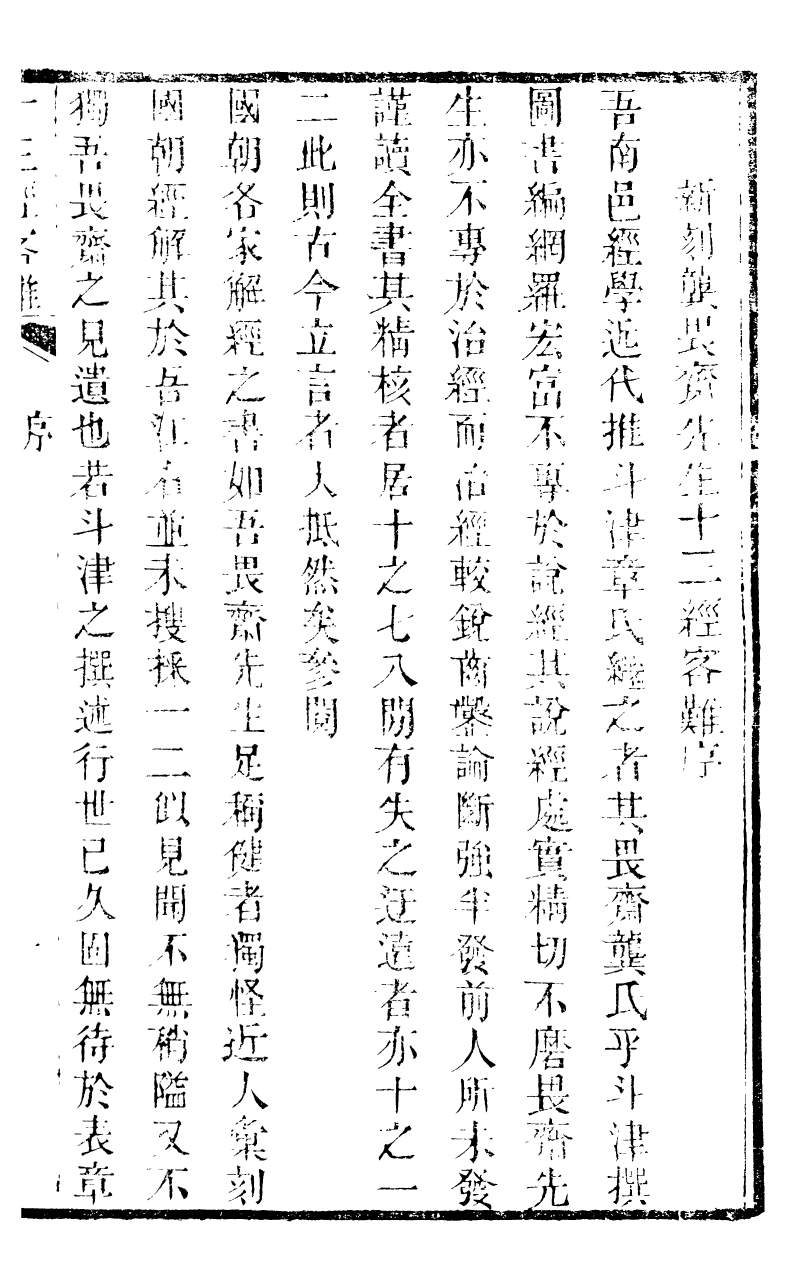 新刻龔畏齋先生十三經客難序
吾南邑經學近代推斗津章氏繼之者其畏齋龔氏乎斗津撰
圖書編網羅宏富不專於說經其說經處實精切不磨畏齋先
生亦不專於治經而治經較銳商搉論斷強半發前人所未發
謹讀全書其精核者居十之七八間有失之迂遠者亦十之一
二此則古今立言者大抵然矣參閱
國朝各家解經之書如吾畏齋先生足稱健者獨怪近人彙刻
國朝經解其於吾江右並未搜採一二似見聞不無稍隘又不
獨吾畏齋之見遺也若斗津之撰述行世已久固無待於表章
十三經客難 序